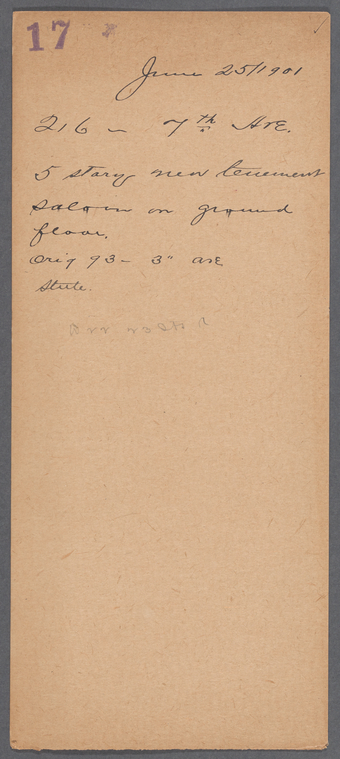 17
June 25/1901
216 - 7th Ave.
5 story new tenement
saloon on ground
floor.
Orig 93 - 3" ave